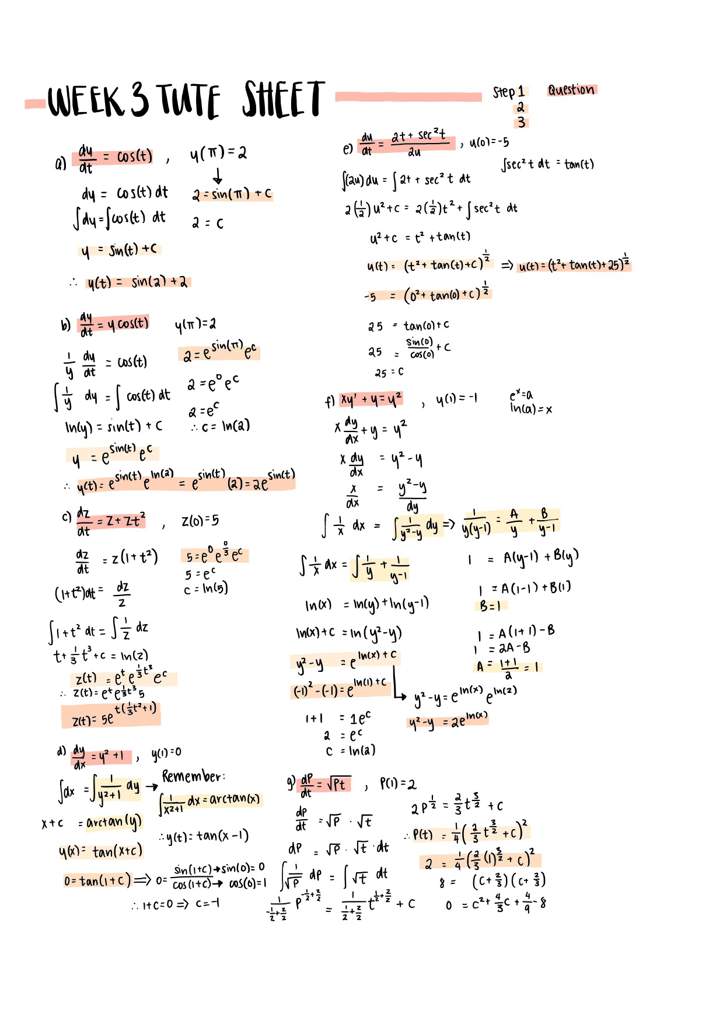 WEEK 3 TUTE SHEET
Step 1 Question
2
3
a) dy/dt = cos(t) , y(π)=2
dy = cos(t) dt 2 = sin(π) + C
∫dy = ∫cos(t) dt 2 = C
y = sin(t) + C
∴ y(t) = sin(2) + 2
b) dy/dt = y cos(t) y(π)=2
1/y dy/dt = cos(t) 2 = e^sin(π) e^c
∫ 1/y dy = ∫ cos(t) dt 2 = e^0 e^c
2 = e^c
ln(y) = sin(t) + C ∴ c = ln(2)
y = e^sin(t) e^c
∴ y(t) = e^sin(t) e^ln(2) = e^sin(t) (2) = 2e^sin(t)
c) dz/dt = z + zt² , z(0)=5
dz/dt = z(1+t²) 5 = e^0 e^(0/3) e^c
5 = e^c
(1+t²)dt = dz/z c = ln(5)
∫1+t² dt = ∫ 1/z dz
t + 1/3 t³ + c = ln(z)
z(t) = e^t e^(1/3 t³) e^c
∴ z(t) = e^t e^(1/3 t³) 5
z(t) = 5e^(t(1/3 t² + 1))
d) dy/dx = y² + 1 , y(1)=0
∫dx = ∫ 1/(y²+1) dy → Remember:
∫ 1/(x²+1) dx = arctan(x)
x + c = arctan(y)
y(x) = tan(x+c) ∴ y(t) = tan(x-1)
0 = tan(1+c) ⟹ 0 = sin(1+c)/cos(1+c) → sin(0) = 0 → cos(0) = 1
∴ 1+c = 0 ⟹ c = -1
e) du/dt = (2t + sec²t)/2u , u(0) = -5
∫sec²t dt = tan(t)
∫(2u) du = ∫ 2t + sec²t dt
2(1/2) u² + c = 2(1/2) t² + ∫ sec²t dt
u² + c = t² + tan(t)
u(t) = (t² + tan(t) + c)^(1/2) ⟹ u(t) = (t² + tan(t) + 25)^(1/2)
-5 = (0² + tan(0) + c)^(1/2)
25 = tan(0) + c
25 = sin(0)/cos(0) + c
25 = c
f) xy' + y = y² , y(1) = -1 e^x = a
ln(a) = x
x dy/dx + y = y²
x dy/dx = y² - y
x/dx = (y² - y)/dy
∫ 1/x dx = ∫ 1/(y²-y) dy ⟹ 1/(y(y-1)) = A/y + B/(y-1)
∫ 1/x dx = ∫ 1/y + 1/(y-1) 1 = A(y-1) + B(y)
1 = A(1-1) + B(1)
ln(x) = ln(y) + ln(y-1) B = 1
ln(x) + c = ln(y² - y) 1 = A(1+1) - B
1 = 2A - B
y² - y = e^(ln(x) + c) A = (1+1)/2 = 1
(-1)² - (-1) = e^(ln(1) + c) → y² - y = e^ln(x) e^ln(2)
1 + 1 = 1e^c y² - y = 2e^ln(x)
2 = e^c
c = ln(2)
g) dP/dt = √Pt , P(1) = 2
dP/dt = √P · √t
dP = √P · √t · dt
∫ 1/√P dP = ∫ √t dt
1/(-1/2+2/2) P^(-1/2+2/2) = 1/(1/2+2/2) t^(1/2+2/2) + C
2P^(1/2) = 2/3 t^(3/2) + C
∴ P(t) = 1/4 (2/3 t^(3/2) + C)²
2 = 1/4 (2/3 (1)^(3/2) + C)²
8 = (C + 2/3)(C + 2/3)
0 = C² + 4/3 C + 4/9 - 8